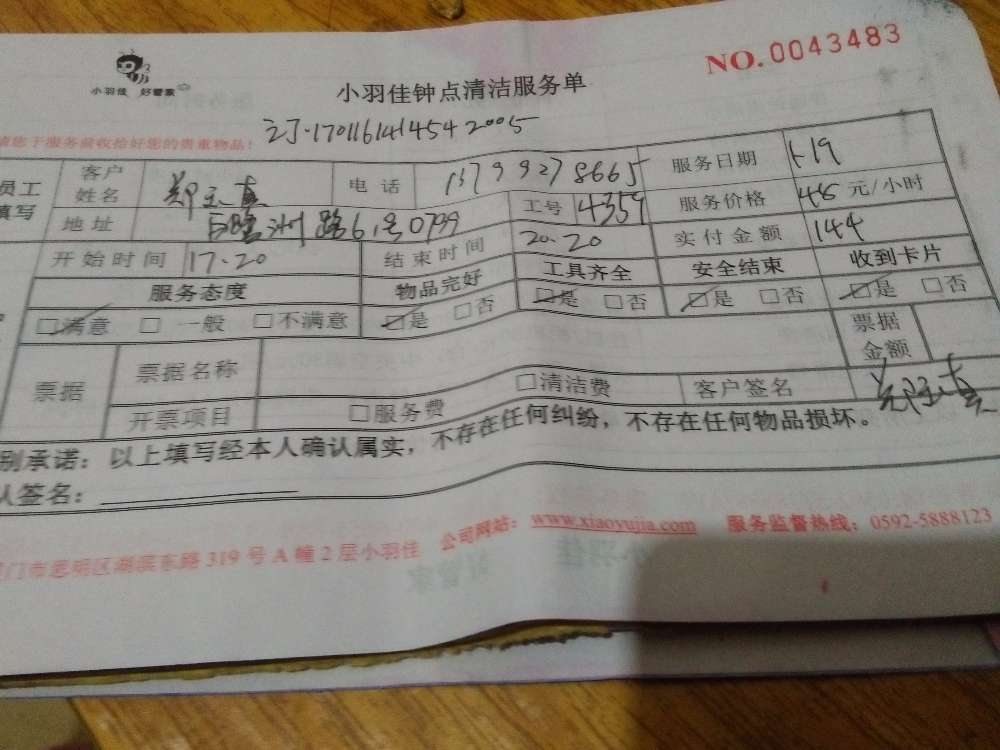 小羽佳 好管家
NO.0043483
小羽佳钟点清洁服务单
170116141454 2005
请您于服务前收拾好您的贵重物品!
员工填写 客户姓名 郑玉真 电话 13799278665 服务日期 1-19
地址 路6号0799 工号 4359 服务价格 48 元/小时
开始时间 17.20 结束时间 20.20 实付金额 144
服务态度 物品完好 工具齐全 安全结束 收到卡片
□满意 □一般 □不满意 □是 □否 □是 □否 □是 □否 □是 □否
票据 票据名称 票据金额
开票项目 □服务费 □清洁费 客户签名 郑玉真
别承诺：以上填写经本人确认属实，不存在任何纠纷，不存在任何物品损坏。
人签名：
门市思明区湖滨东路319号A幢2层小羽佳 公司网站：www.xiaoyujia.com 服务监督热线：0592-5888123